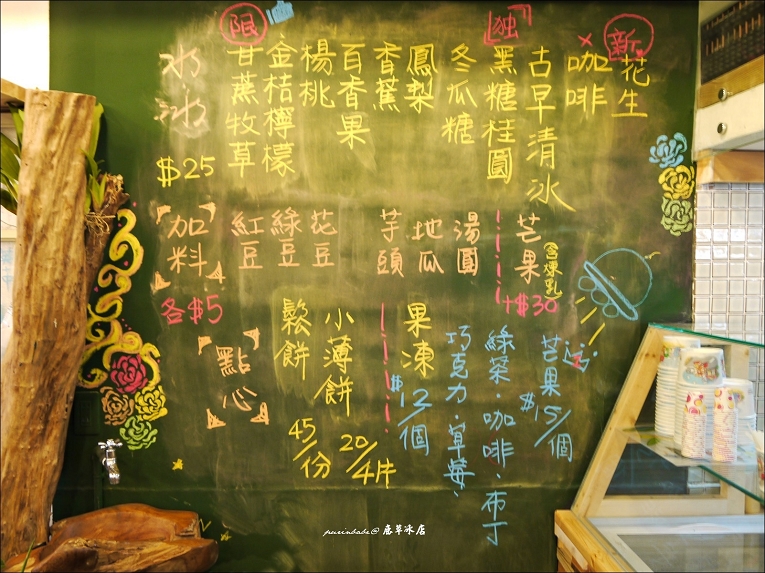 水冰
$25
限
甘蔗牧草
金桔檸檬
楊桃
百香果
香蕉
鳳梨
冬瓜糖
独
黑糖桂圓
古早清冰
咖啡
新
花生
加料
各$5
紅豆
綠豆
花豆
芋頭
地瓜
湯圓
芒果
(含煉乳)
+$30
點心
鬆餅
45/份
小薄餅
20/4片
果凍
$12/個
巧克力·草莓·
綠茶·咖啡·布丁
芒果
$15/個
purinbabe@鹿草冰店